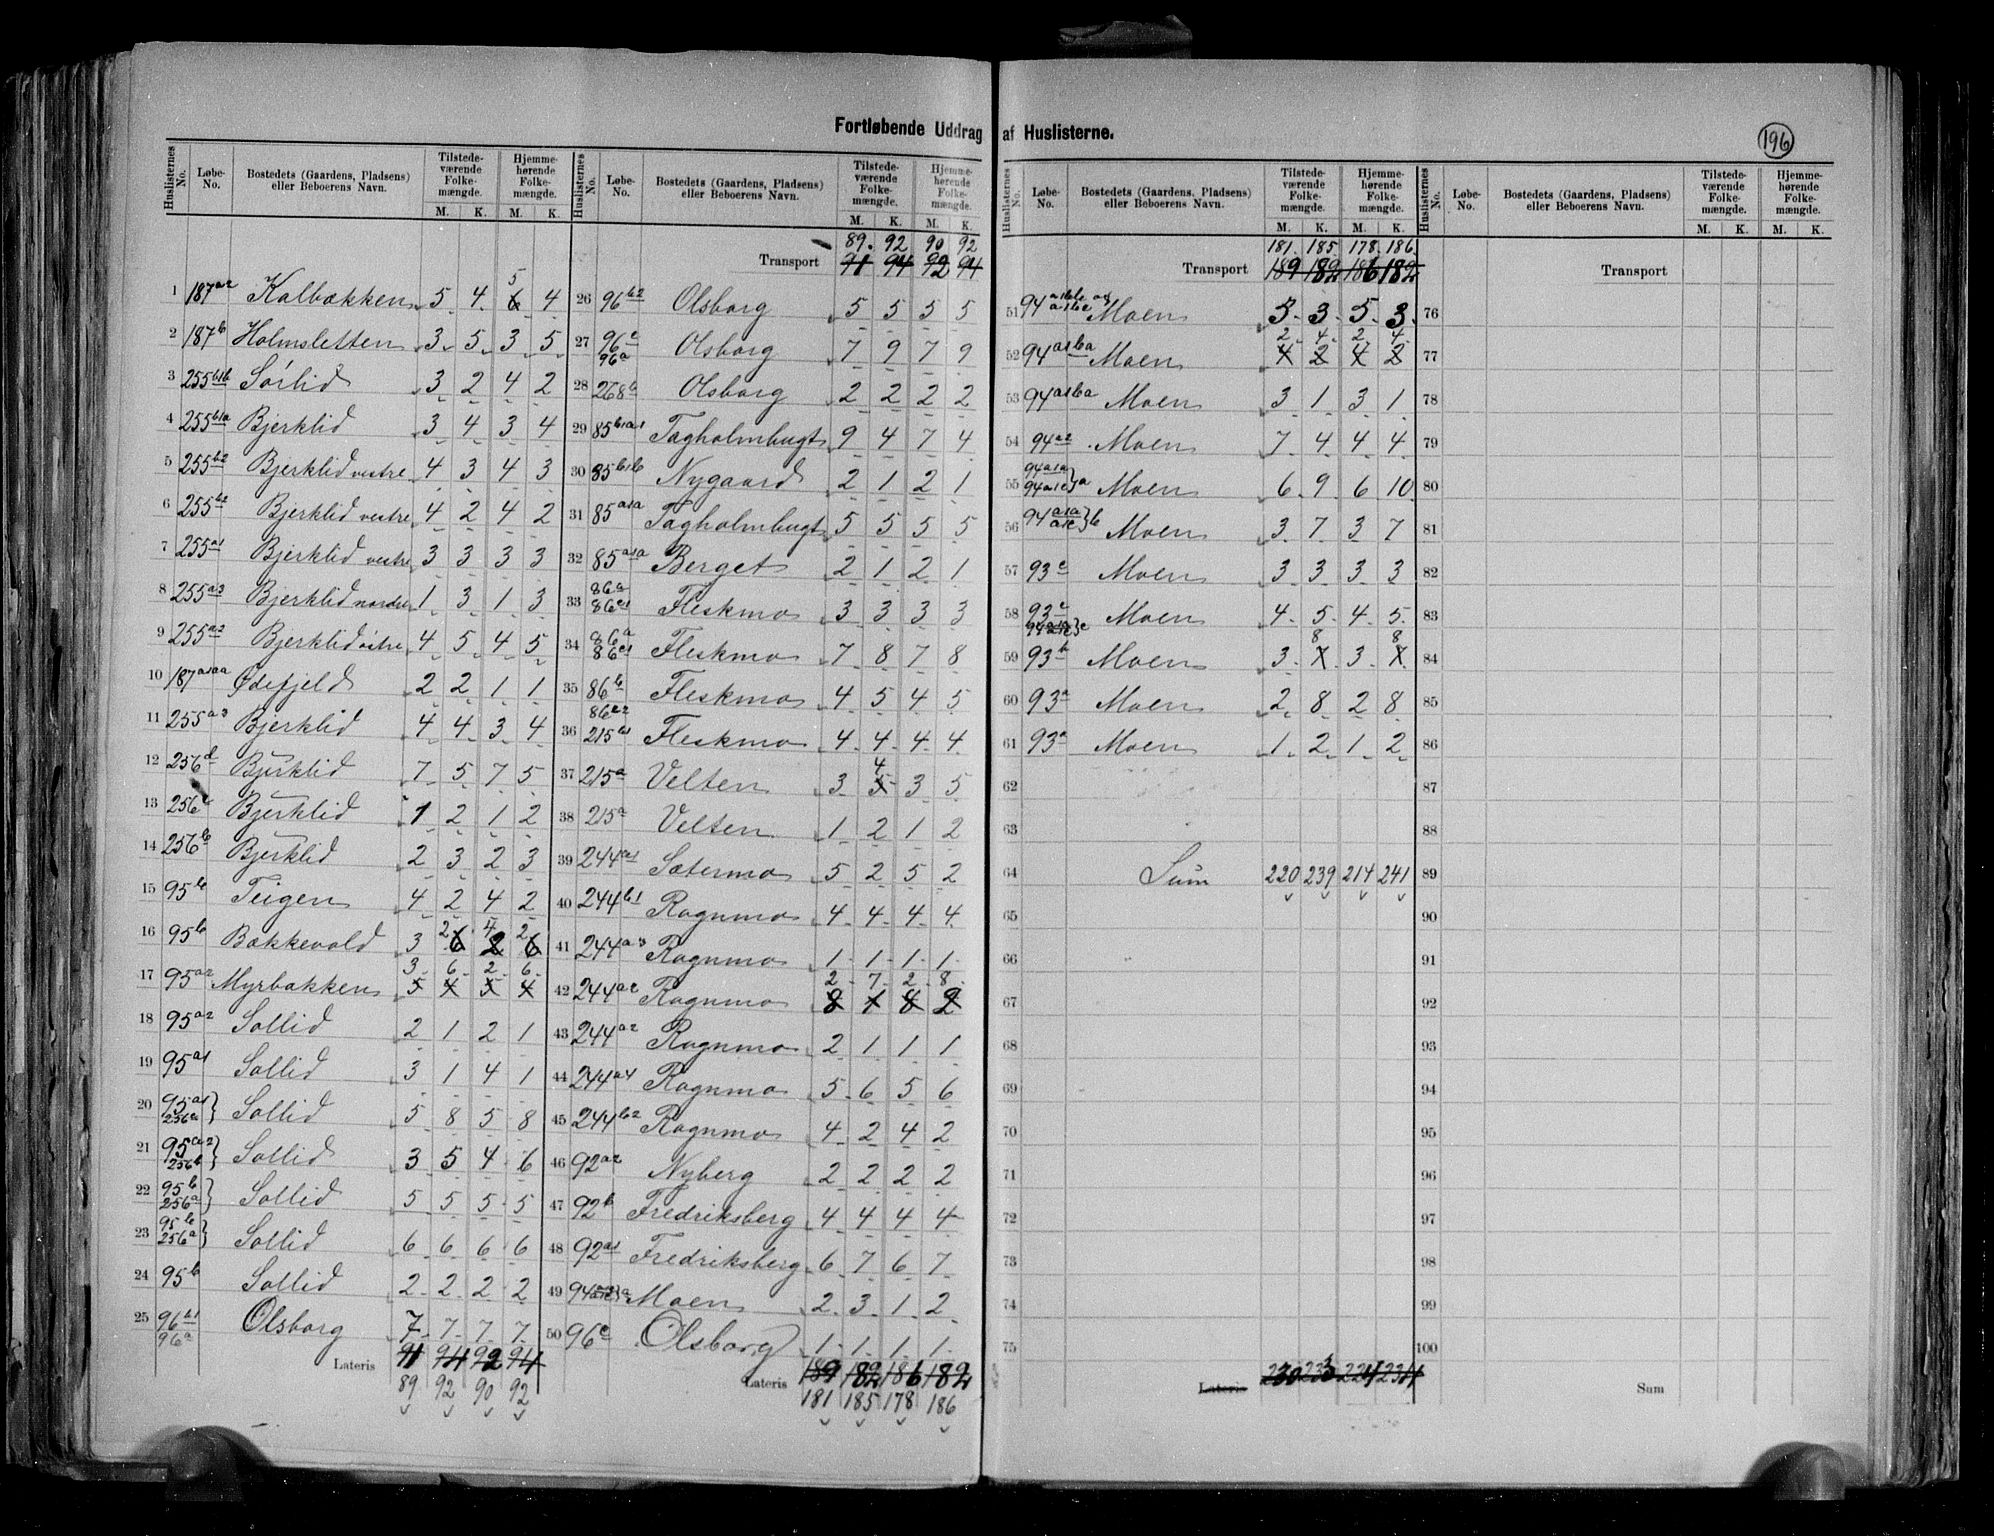 Fortløbende Uddrag af Huslisterne.
196
Huslisternes No. Løbe-No. Bostedets (Gaardens, Pladsens) eller Beboerens Navn. Tilstedeværende Folkemængde. M. K. Hjemmehørende Folkemængde. M. K.
1 187a2 Kalbækken 5 4 6 5 4
2 187b Holmsletten 3 5 3 5
3 255b1b Sørlid 3 2 4 2
4 255b1a Bjerklid 3 4 3 4
5 255b2 Bjerklid vestre 4 3 4 3
6 255b2 Bjerklid vestre 4 2 4 2
7 255a1 Bjerklid vestre 3 3 3 3
8 255a3 Bjerklid nordre 1 3 1 3
9 255a2 Bjerklid östre 4 5 4 5
10 187a1aa Ødefjeld 2 2 1 1
11 255a3 Bjerklid 4 4 3 4
12 256d Bjerklid 7 5 7 5
13 256c Bjerklid 1 2 1 2
14 256b Bjerklid 2 3 2 3
15 95b Teigen 4 2 4 2
16 95b Bækkevold 3 2 4 2
17 95a2 Myrbakken 3 6 2 6
5 4 5 4
18 95a2 Sollid 2 1 2 1
19 95a1 Sollid 3 1 4 1
20 95a1 256a Sollid 5 8 5 8
21 95a2 256b Sollid 3 5 4 6
22 95b 256a Sollid 5 5 5 5
23 95b 256a Sollid 6 6 6 6
24 95b Sollid 2 2 2 2
25 96b1 96a Olsborg 7 7 7 7
Lateris 91 94 92 94
89 92 90 92
Huslisternes No. Løbe-No. Bostedets (Gaardens, Pladsens) eller Beboerens Navn. Tilstedeværende Folkemængde. M. K. Hjemmehørende Folkemængde. M. K.
89. 92 90 92
Transport 91 94 92 94
26 96b2 Olsborg 5 5 5 5
27 96c 96a Olsborg 7 9 7 9
28 268b Olsborg 2 2 2 2
29 85b1a1 Tagholmbugt 9 4 7 4
30 85b1b Nygaard 2 1 2 1
31 85a1a Tagholmbugt 5 5 5 5
32 85a1a Berget 2 1 2 1
33 86a 86c1 Fleskmo 3 3 3 3
34 86a 86c1 Fleskmo 7 8 7 8
35 86b Fleskmo 4 5 4 5
36 86c2 215b1 Fleskmo 4 4 4 4
37 215a Velten 3 5 4 3 5
38 215a Velten 1 2 1 2
39 244a1 Sætermo 5 2 5 2
40 244b1 Rognmo 4 4 4 4
41 244a3 Rognmo 1 1 1 1
42 244a2 Rognmo 2 7 2 8
8 1 8 2
43 244a2 Rognmo 2 1 1 1
44 244a4 Rognmo 5 6 5 6
45 244b2 Rognmo 4 2 4 2
46 92a2 Nyberg 2 2 2 2
47 92b Fredriksberg 4 4 4 4
48 92a1 Fredriksberg 6 7 6 7
49 94 Moen 2 3 1 2
50 96c Olsborg 1 1 1 1
Lateris 189 182 186 182
181 185 178 186
Huslisternes No. Løbe-No. Bostedets (Gaardens, Pladsens) eller Beboerens Navn. Tilstedeværende Folkemængde. M. K. Hjemmehørende Folkemængde. M. K.
181. 185 178. 186
Transport 189 182 186 182
51 94 Moen 3 5 3
52 94a1ba Moen 2 4 2 4
4 2 4 2
53 94a1ba Moen 3 1 3 1
54 94a2 Moen 7 4 4 4
55 94a1a 94a1c}a Moen 6 9 6 10
56 94 a1a a1c}b Moen 3 7 3 7
57 93c Moen 3 3 3 3
58 93c Moen 4 5 4 5
59 93b Moen 3 8 3 8
60 93a Moen 2 8 2 8
61 93a Moen 1 2 1 2
62
63
64 Sum 220 239 214 241
65
66
67
68
69
70
71
72
73
74
75
Lateris 230 233 224 234
Huslisternes No. Løbe-No. Bostedets (Gaardens, Pladsens) eller Beboerens Navn. Tilstedeværende Folkemængde. M. K. Hjemmehørende Folkemængde. M. K.
Transport
76
77
78
79
80
81
82
83
84
85
86
87
88
89
90
91
92
93
94
95
96
97
98
99
100
Sum